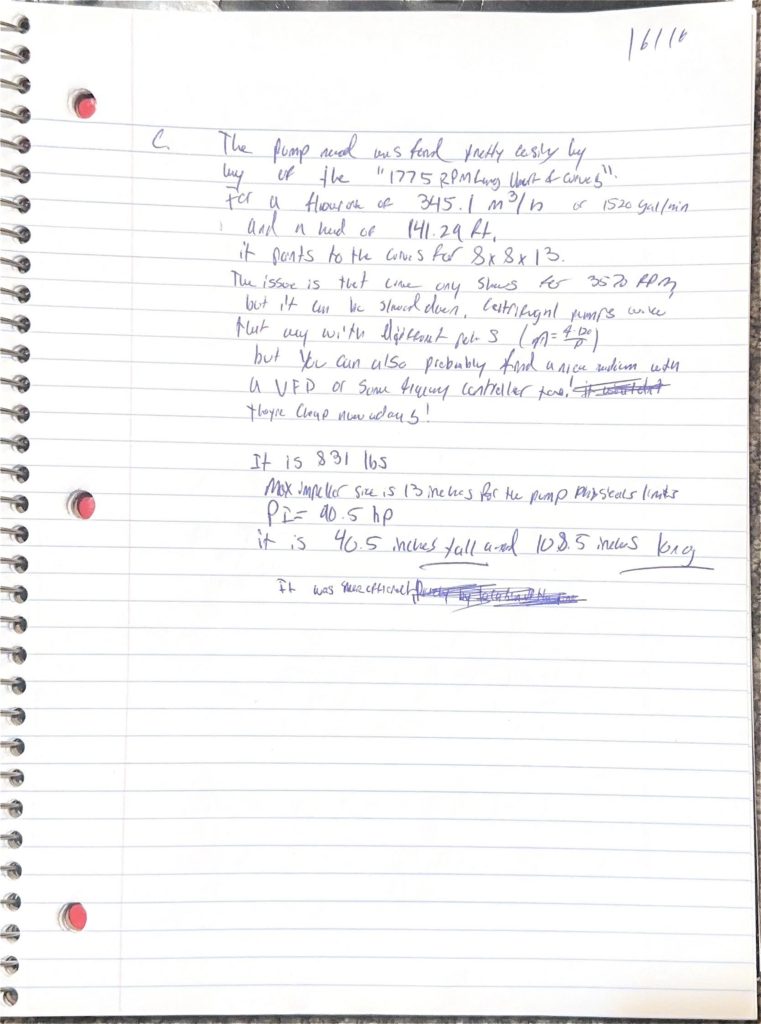 16/16
C. The pump need was found pretty easily by
way of the "1775 RPM Chart of Curves".
For a flowrate of 345.1 m³/h or 1520 gal/min
and a head of 141.29 ft,
it points to the curves for 8x8x13.
The issue is that curve only shows for 3570 RPM,
but it can be slowed down. Centrifugal pumps
that way with different poles (n = 120/P)
but you can also probably find a nice medium with
a VFD or some frequency controller
they're cheap nowadays!
It is 831 lbs
Max impeller size is 13 inches for the pump physical limits
PI = 90.5 hp
it is 40.5 inches tall and 108.5 inches long
It was more efficient